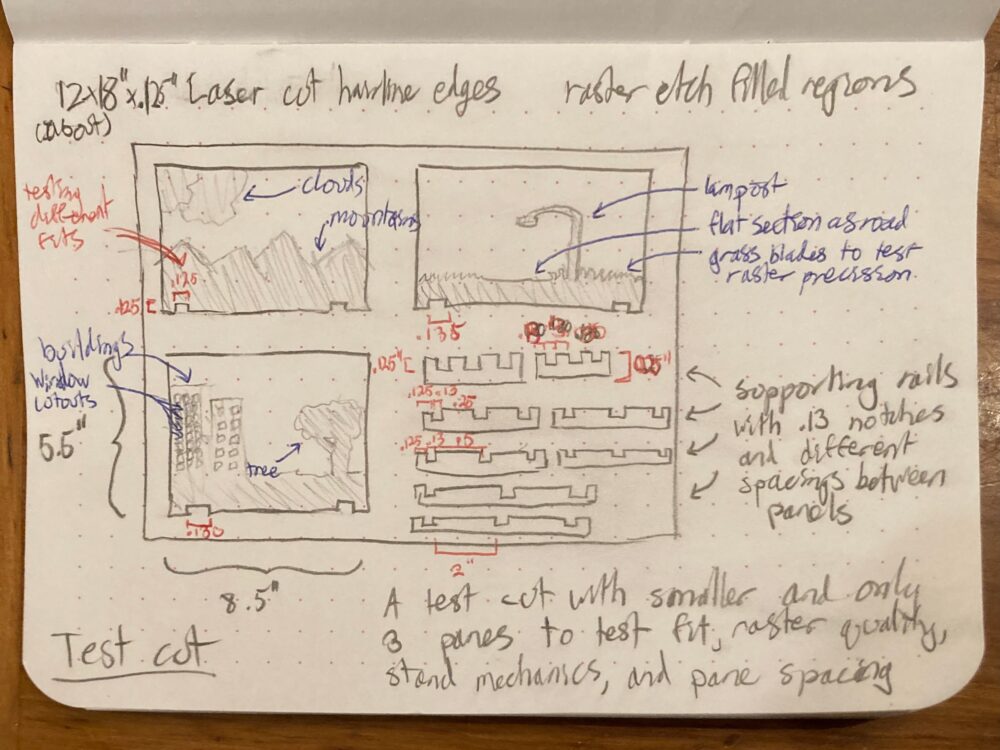 12x18"x.125" Laser cut hairline edges
raster etch filled regions
(about)
testing
different
fits
clouds
mountains
.125
.125
lampost
flat section as road
grass blades to test
raster precission.
.135
buildings
window
cutouts
5.5"
tree
.130
8.5"
.125"
.125 .13 .25
.125 .13 .5
2"
supporting rails
with .13 notches
and different
spacings between
panels
A test cut with smaller and only
3 panes to test fit, raster quality,
stand mechanics, and pane spacing
Test cut